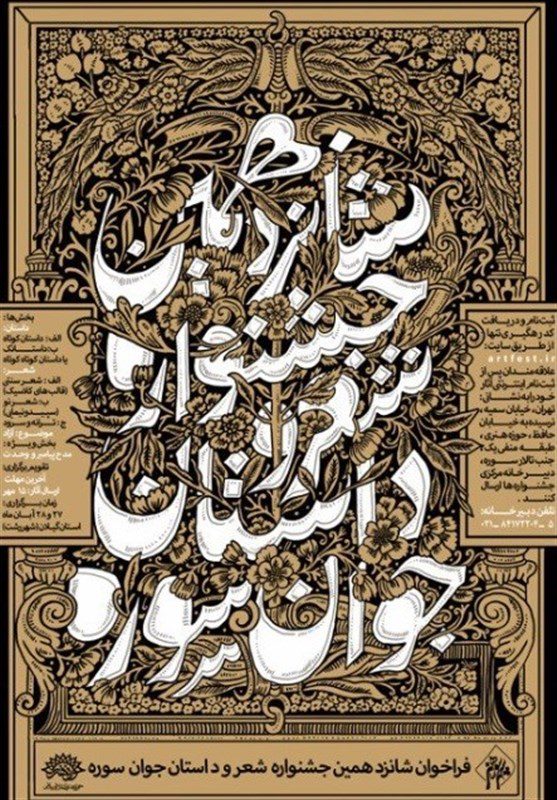 شانزدهمین
جشنواره
شعر و
داستان
جوان سوره
بخش‌ها:
داستان:
الف: داستان کوتاه
یا داستان کوتاه کوتاه
شعر:
الف: شعر سنتی
(قالب‌های کلاسیک)
ج: ترانه و سرود
موضوع: آزاد
بخش ویژه:
مدح پیامبر و وحدت
تقویم برگزاری:
آخرین مهلت
ارسال آثار: ۱۵ مهر
زمان برگزاری:
۲۷ و ۲۸ آبان ماه
استان گیلان (شهر رشت)
ثبت‌نام و دریافت
کد رهگیری تنها
از طریق سایت:
artfest.ir
علاقه‌مندان پس از
ثبت‌نام اینترنتی آثار
خود را به نشانی:
تهران، خیابان سمیه،
نرسیده به خیابان
حافظ، حوزه هنری،
طبقه منفی یک
جنب تالار سوره،
دبیرخانه مرکزی
جشنواره‌ها ارسال
کنند.
تلفن دبیرخانه:
فراخوان شانزدهمین جشنواره شعر و داستان جوان سوره